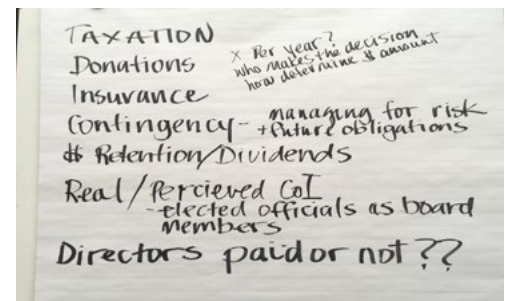 TAXATION
Donations
x Per year?
who makes the decision
how determine $ amount
Insurance
Contingency - managing for risk
+ future obligations
$ Retention/Dividends
Real/Percieved CoI
- elected officials as board
members
Directors paid or not??